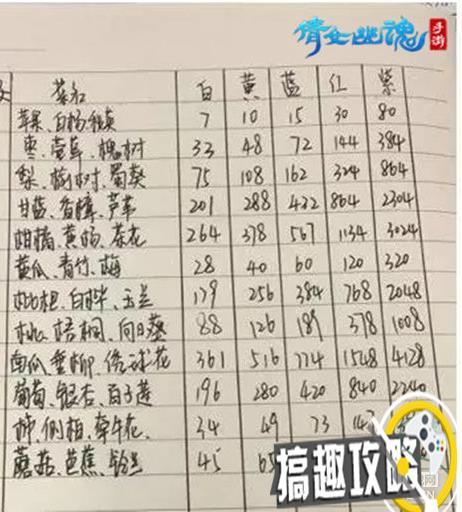 倩女幽魂 手游
菜红 白 黄 蓝 红 紫
苹果、白杨、 7 10 15 30 80
枣、萱草、槐树 33 48 72 144 384
梨、榆树、蜀葵 75 108 162 324 864
甘蓝、香樟、芦荟 201 288 432 864 2304
柑橘、黄杨、茶花 264 378 567 1134 3024
黄瓜、青竹、梅 28 40 60 120 320
枇杷、白桦、玉兰 179 256 384 768 2048
桃、梧桐、向日葵 88 126 189 378 1008
南瓜、垂柳、绣球花 361 516 774 1548 4128
葡萄、银杏、百子莲 196 280 420 840 2240
柿、侧柏、牵牛花、 34 49 73 147
蘑菇、芭蕉、铃兰 45
搞趣攻略